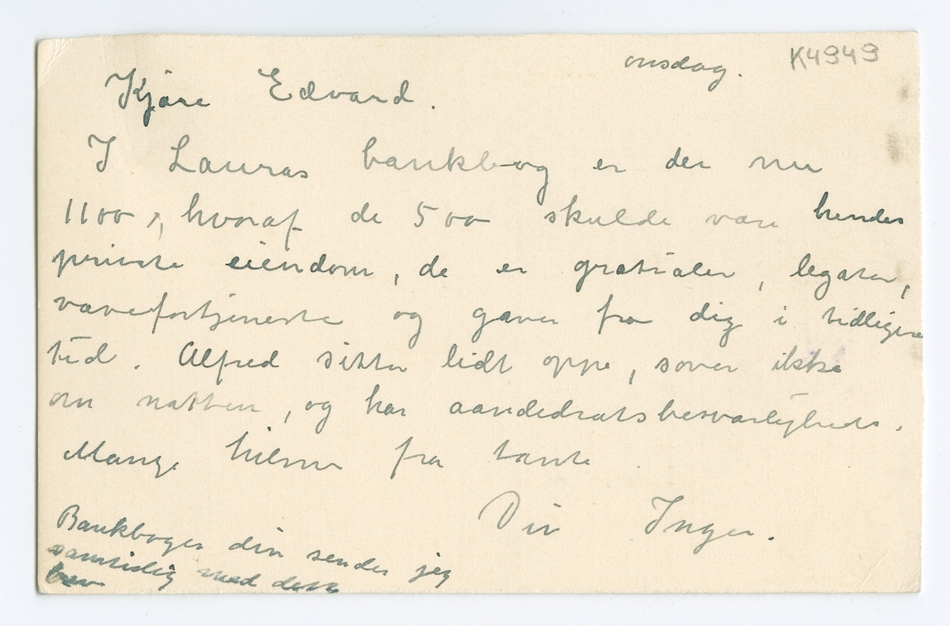 onsdag. K4949
Kjære Edvard.
I Lauras bankbog er der nu
1100,, hvoraf de 500 skulde være hendes
private eiendom, de er gratialer, legater,
vævefortjeneste og gaver fra dig i tidligere
tid. Alfred sitter lidt oppe, sover ikke
om natten, og har aandedrætsbesværligheder.
Mange hilsner fra tante.
Din Inger.
Bankbogen din sender jeg
samtidig med dette
brev